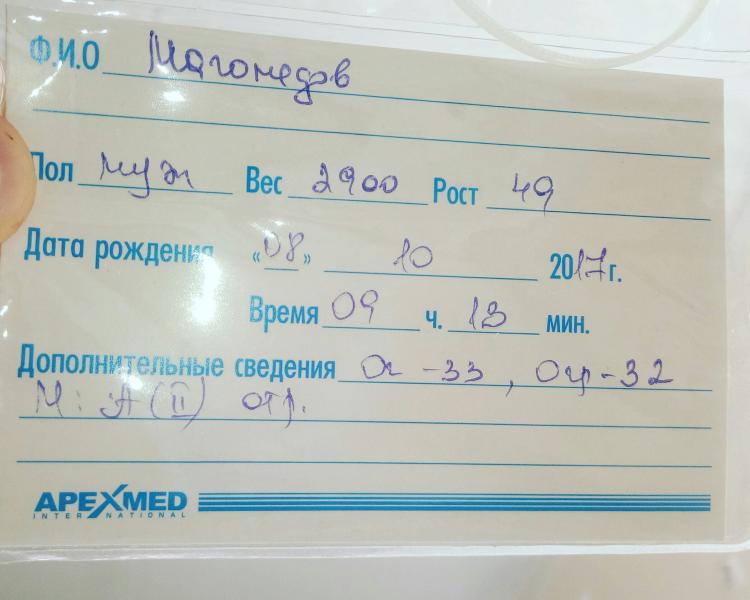 Ф.И.О Магомедов
Пол муж Вес 2900 Рост 49
Дата рождения «08» 10 2017г.
Время 09 ч. 13 мин.
Дополнительные сведения Ог -33, Огр-32
М: А(II) отр.
APEXMED
INTERNATIONAL